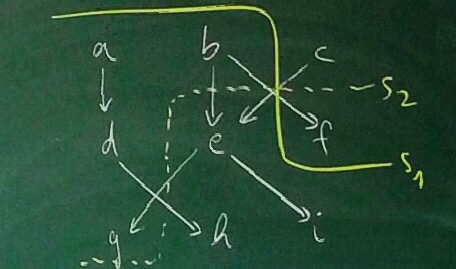 a b c
s₂
d e f
s₁
g h i